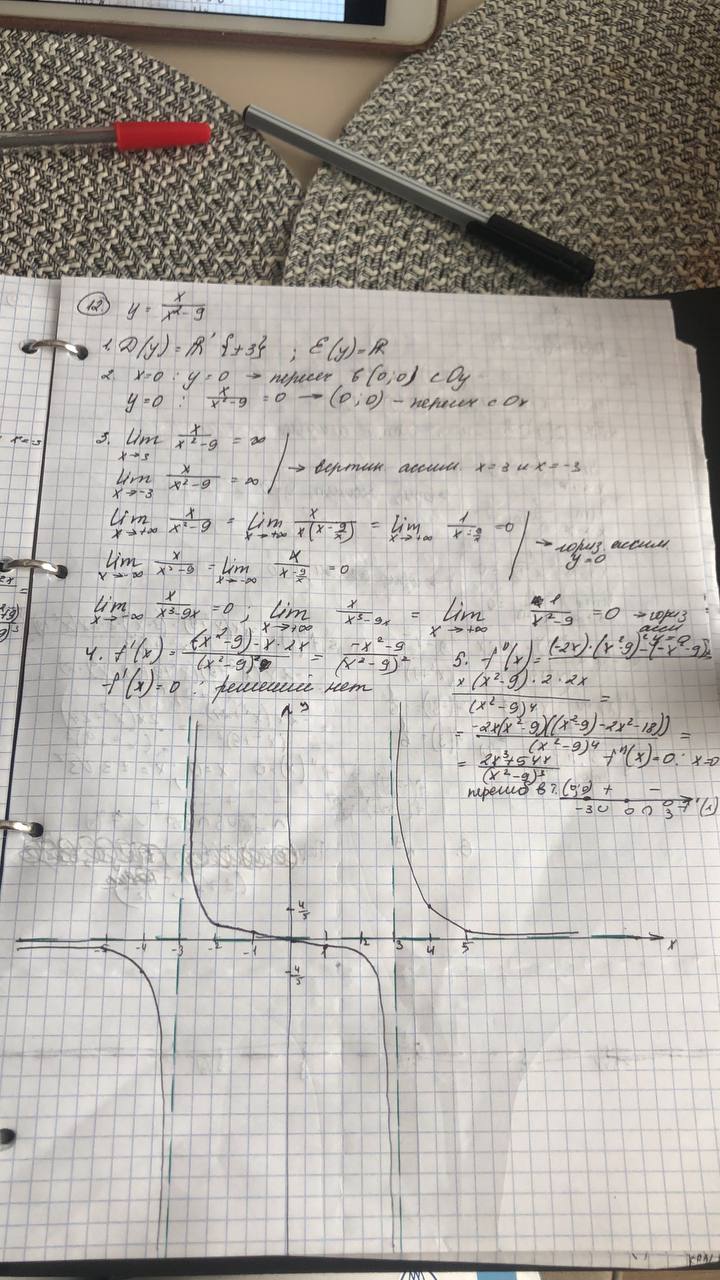 12. y = x/(x²-9)
1. D(y) = R \ {±3} ; E(y) = R
2. x=0 : y=0 → перес в (0;0) с Oy
y=0 : x/(x²-9) = 0 → (0;0) – перес с Ox
3. lim x→3 x/(x²-9) = ∞
lim x→-3 x/(x²-9) = ∞ → вертик ассим. x=3 и x=-3
lim x→+∞ x/(x²-9) = lim x→+∞ x/(x(x-9/x)) = lim x→+∞ 1/(x-9/x) = 0
→ гориз. ассим y=0
lim x→-∞ x/(x²-9) = lim x→-∞ x/(x-9/x) = 0
lim x→-∞ x/(x³-9x) = 0 ; lim x→+∞ x/(x³-9x) = lim x→+∞ 1/(x²-9) = 0 → гориз ассим y=0
4. f'(x) = ((x²-9)-x·2x)/(x²-9)² = (-x²-9)/(x²-9)²
f'(x)=0 : решений нет
5. f''(x) = (-2x)·(x²-9)²-(-x²-9)·
x(x²-9)·2·2x/(x²-9)⁴ =
= -2x(x²-9)((x²-9)-2x²-18))/(x²-9)⁴ =
= (2x³+54x)/(x²-9)³ f''(x)=0 : x=0
перегиб в т. (0;0) + -
-3 0 3 f''(x)
y
4/5
-5 -4 -3 -2 -1 1 2 3 4 5 x
-4/5